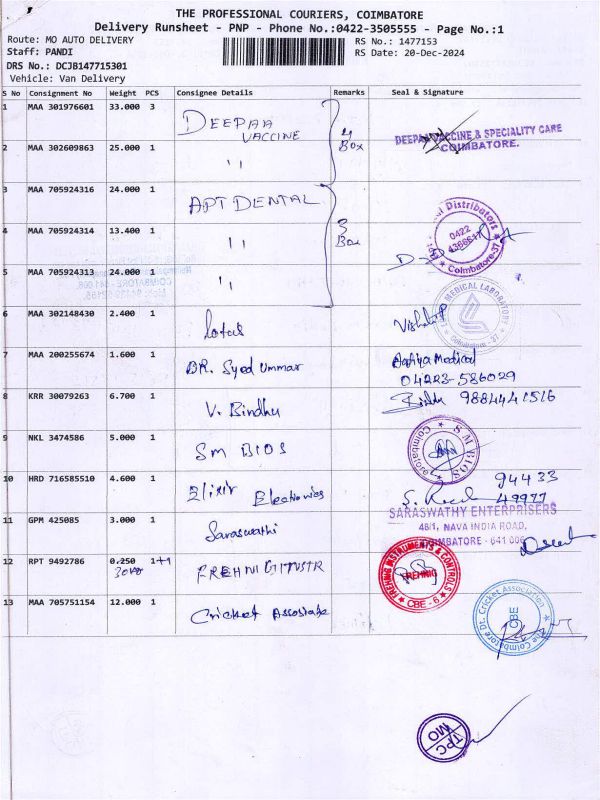 THE PROFESSIONAL COURIERS, COIMBATORE
Delivery Runsheet - PNP - Phone No.:0422-3505555 - Page No.:1
Route: MO AUTO DELIVERY
RS No.: 1477153
Staff: PANDI
RS Date: 20-Dec-2024
DRS No.: DCJB147715301
Vehicle: Van Delivery
S No Consignment No Weight PCS Consignee Details Remarks Seal & Signature
1 MAA 301976601 33.000 3 DEEPAA VACCINE
4 Box
DEEPAA VACCINE & SPECIALITY CARE
COIMBATORE.
2 MAA 302609863 25.000 1 "
3 MAA 705924316 24.000 1 APT DENTAL
3 Box
4 MAA 705924314 13.400 1 "
Distributors
0422
Coimbatore-37
5 MAA 705924313 24.000 1 "
MEDICAL LABORATORY
Coimbatore - 37
6 MAA 302148430 2.400 1 lotus
7 MAA 200255674 1.600 1 DR. Syed Ummar
Medical
04223-586029
8 KRR 30079263 6.700 1 V. Bindhu Bindhu 9884441516
9 NKL 3474586 5.000 1 SM BIOS
S.M BIOS
Coimbatore
10 HRD 716585510 4.600 1 Elixir Electronics
94433
49977
11 GPM 425085 3.000 1 Saraswathi
SARASWATHY ENTERPRISERS
48/1, NAVA INDIA ROAD,
COIMBATORE - 641 006
12 RPT 9492786 0.250 1+1
FREHNIG INSTRUMENTS & CONTROLS
FREHNIG
CBE - 6
13 MAA 705751154 12.000 1 Cricket Assostate
The Coimbatore Dt. Cricket Association
CBE
TPC
MO